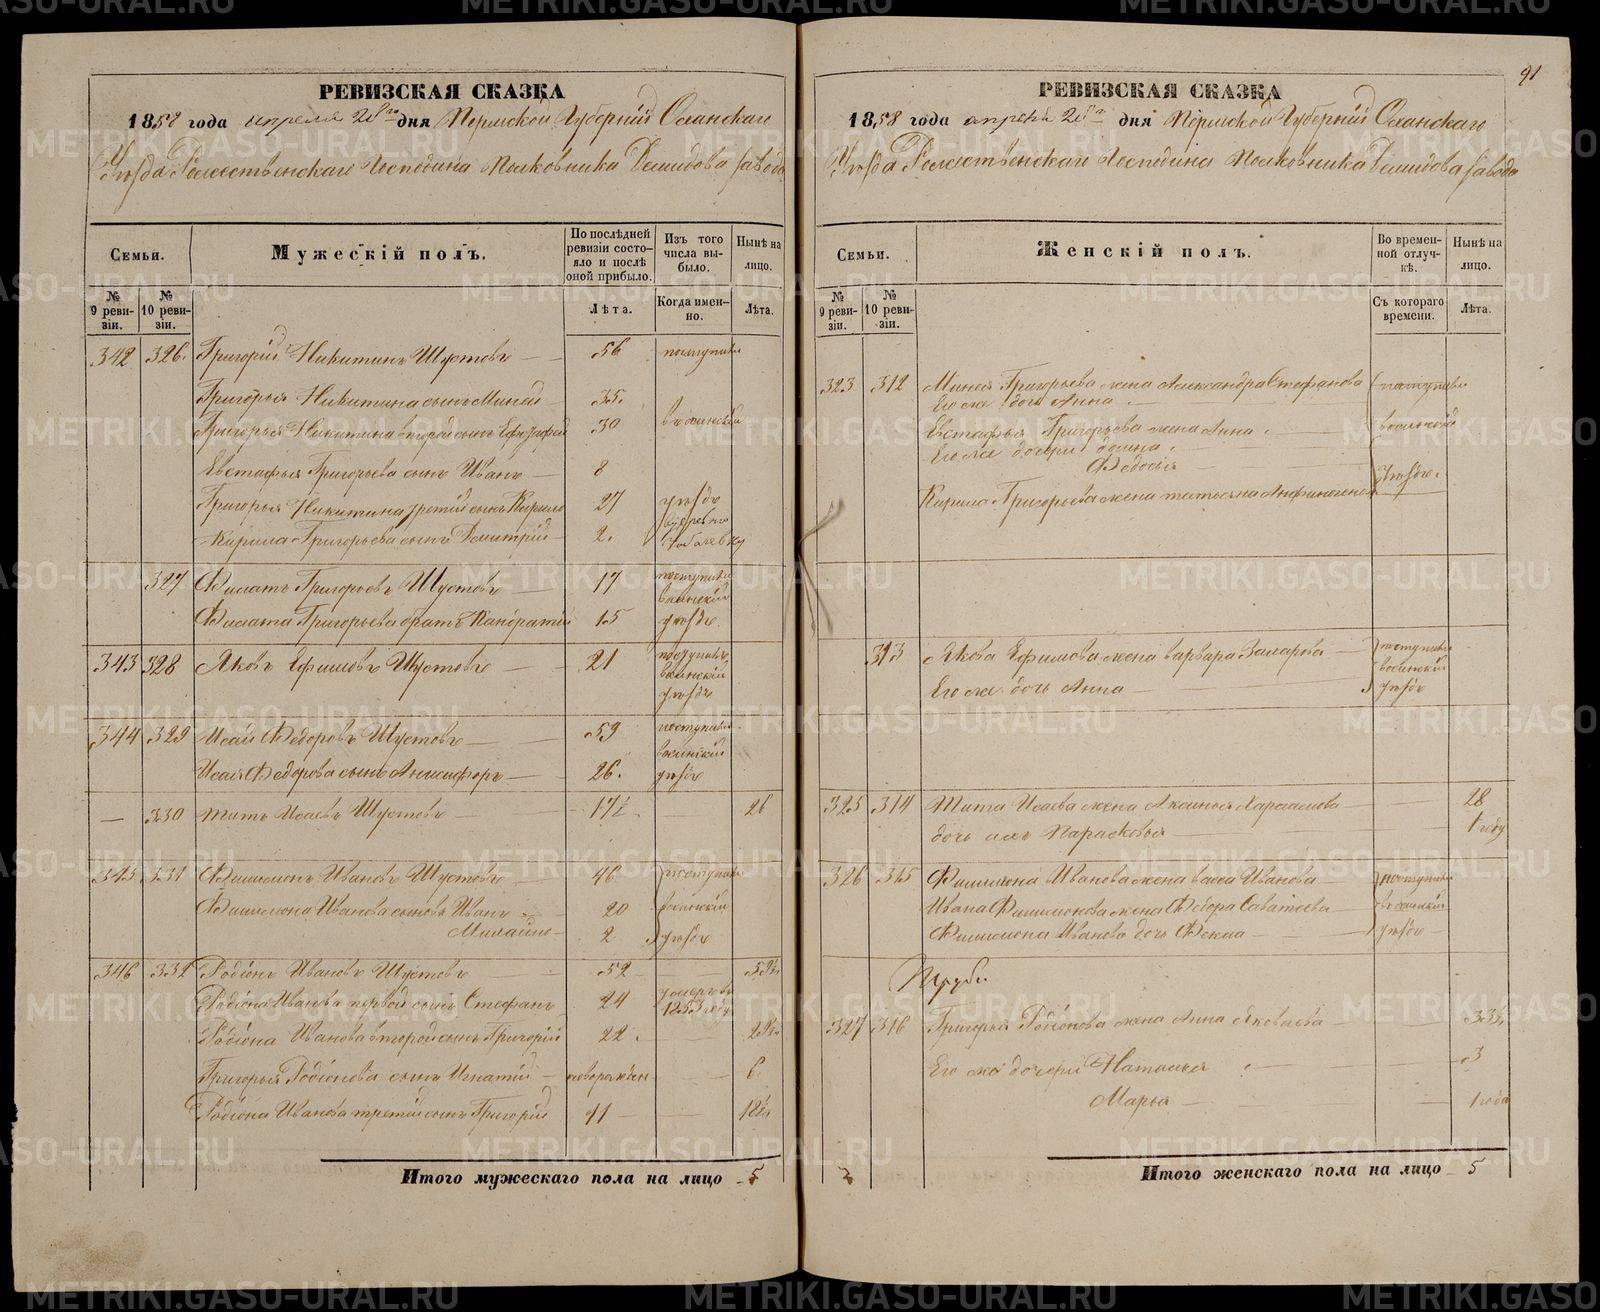 91
РЕВИЗСКАЯ СКАЗКА
1858 года апреля 28го дня Пермской Губернiи Осинскаго
Уезда Рождественскаго Господина Полковника Демидова завода
Семьи.
Мужескiй полъ.
По послѣдней ревизiи состояло и послѣ оной прибыло.
Изъ того числа выбыло.
Нынѣ на лицо.
№ 9 ревизiи.
№ 10 ревизiи.
Лѣта.
Когда именно.
Лѣта.
342 326. Григорiй Никитинъ Шустовъ — 56 поступили
Григорья Никитина сынъ Миней — 35.
Григорья Никитина второй сынъ Евстафей 30 в осинскiй
Евстафья Григорьева сынъ Иванъ — 8
Григорья Никитина третiй сынъ Кирило 27 уездъ
Кирила Григорьева сынъ Дмитрiй — 2. в деревню
327 Филатъ Григорьевъ Шустовъ — 17 поступили восинскiй
Филата Григорьева братъ Кандратiй 15 уездъ.
343 328 Яковъ Ефимовъ Шустовъ — 21 поступилъ восинскiй уездъ
344 329 Исай Федоровъ Шустовъ — 59 поступили восинскiй
Исая Федорова сынъ Анисифоръ — 26. уездъ
— 330 Титъ Исаевъ Шустовъ — 17½ . 26
345 331 Филимонъ Ивановъ Шустовъ 46 поступили
Филимона Иванова сыновья Иванъ — 20 восинскiй
Михайло — 2 уездъ
346 332 Родiонъ Ивановъ Шустовъ 52
Родiона Иванова первой сынъ Стефанъ 24 умеръ въ 1853 году
Родiона Иванова второй сынъ Григорiй 22 .
Григорья Родiонова сынъ Игнатiй — новорожден — 6
Родiона Иванова третiй сынъ Григорiй 11 —
Итого мужескаго пола на лицо 5
РЕВИЗСКАЯ СКАЗКА
1858 года апреля 28го дня Пермской Губернiи Осинскаго
Уезда Рождественскаго Господина Полковника Демидова завода
Семьи.
Женскiй полъ.
Во временной отлучкѣ.
Нынѣ на лицо.
№ 9 ревизiи.
№ 10 ревизiи.
Съ котораго времени.
Лѣта.
323 312 Минея Григорьева жена Александра Стефанова поступили
Его же дочь Анна
Евстафья Григорьева жена Анна . восинскiй
Его же дочери
Федосья
уездъ.
Кирила Григорьева жена татьяна Анфиногенова
313 Якова Ефимова жена варвара Захарова — поступили восинскiй
Его же дочь Анна — уездъ
325 314 Тита Исаева жена Аксинья — 28
дочь ихъ Парасковья — 1 году
326 315 Филимона Иванова жена васса Иванова — поступили
Ивана Филимонова жена Федора Саватеева — восинскiй
Филимона Иванова дочь Фекла — уездъ
327 316 Григорья Родiонова жена Анна Яковлева — 33
Его же дочери Наталья — 3
Марья — 1 года
Итого женскаго пола на лицо 5
METRIKI.GASO-URAL.RU